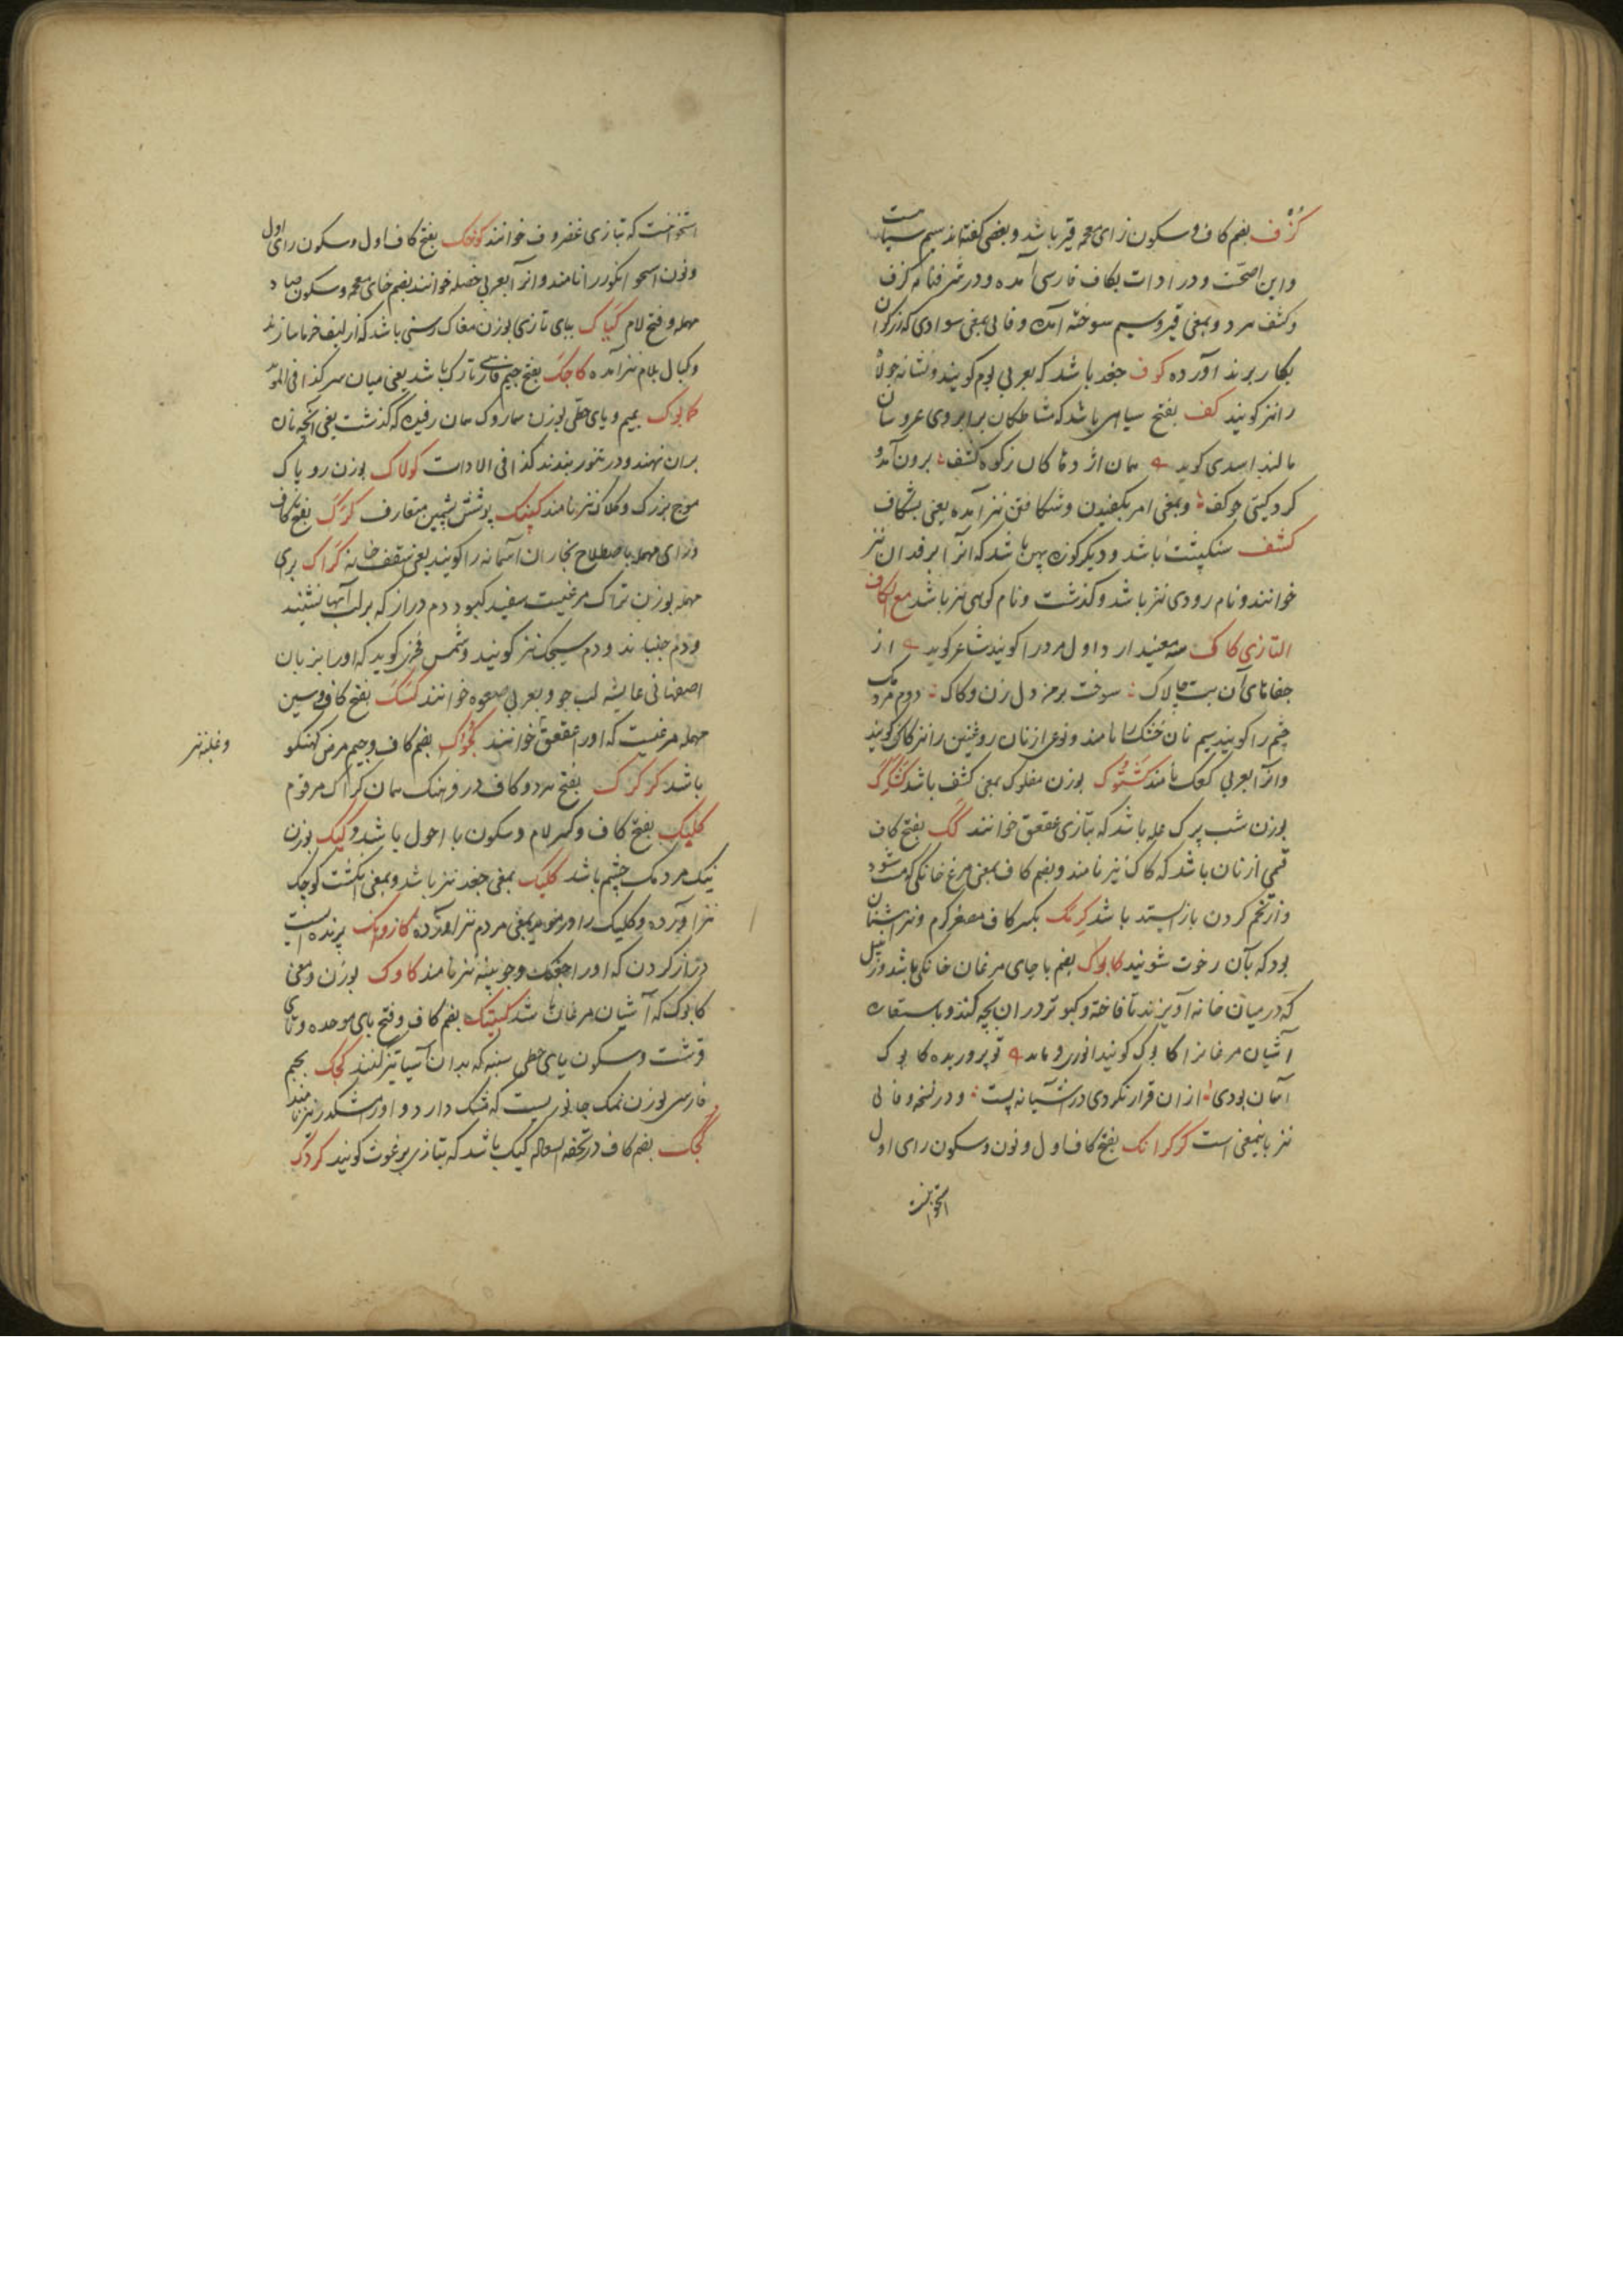 کزف بضم کاف و سکون زای معجمه قیر باشد و بعضی گفته‌اند سیم سیاه است
و این اصحّست و در ادات بکاف فارسی آمده و در شرفنامه کزف
و کشف هر دو بمعنی قیر و سیم سوخته آمده و فایی بمعنی سوادی که زرگران
بکار برند آورده کوف جغد باشد که بعربی بوم کویند و شانه جولاه
را نیز کویند کف بفتح سیاهی باشد که مشاطکان بر ابروی عروسان
مالند اسدی کوید همان اژدها کان ز کوه کشف برون آمد و
کرد کیتی چو کف و بمعنی امر بکفیدن و شکافتن نیز آمده یعنی بشکاف
کشف سنکپشت باشد و دیگر کوزه پهن باشد که انرا برفدان نیز
خوانند و نام رودی نیز باشد و کذشت و نام کوهی نیز باشد مع الکاف
التازی کاک سه معنی دارد اول مرد را کویند شاعر کوید از
جفاهای آن بت چالاک سوخت بر من دل زن و کاک دوم مردمک
چشم را کویند سیم نان خشک را نامند و نوعی از نان روغنین را نیز کاک کویند
و انرا بعربی کعک نامند کشتوک بوزن مفلوک بمعنی کشف باشد
بوزن شب پرک عله باشد که بتازی عقعق خوانند کک بفتح کاف
قمی از نان باشد که کاک نیز نامند و بضم کاف بمعنی مرغ خانگی که مست شود
و از تخم کردن باز ایستد باشد کرنک بکسر کاف مصغر کرم و نیز اشنان
بود که بآن رخوت شویند کابوک بضم با جای مرغان خانگی باشد و زنبیل
که در میان خانه آویزند تا فاخته و کبوتر در ان بچه کند و باستعاره
آشیان مرغانرا کابوک کویند انوری فرماید تو پرورده کابوک
آسمان بودی از ان قرار نکردی در آشیانه پست و در نسخه وفایی
نیز باینمعنی است کرکرانک بفتح کاف اول و نون و سکون رای اول
استخوانیست
استخوانیست که بتازی غضروف خوانند بفتح کاف اول و سکون رای اول
و نون استخوان انکور را نامند و انرا بعربی خصله خوانند بضم خای معجمه و سکون صاد
مهمله و فتح لام کباک ببای تازی بوزن مغاک رسنی باشد که از لیف خرما سازند
و کبال بلام نیز آمده کاچک بفتح جیم فارسی تارک باشد یعنی میان سر کذا فی المؤید
کابوک بمیم و یای حطی بوزن سماروک همان رفیده که کذشت یعنی آنچه نان
بر ان نهند و در تنور بندند کذا فی الادات کولاک بوزن روباک
موج بزرک و کلاک نیز نامند کپنک پوشش پشمین متعارف کرک بفتح کاف
و رای مهمله باصطلاح نجاران آسمانه را کویند یعنی سقف خانه کراک برای
مهمله بوزن تراک مرغیست سفید کبود دم دراز که بر لب آبها نشیند
و دم جنباند و دم سیجک نیز کویند و شمس فخری کوید که او را بزبان
اصفهانی عایشه لب جو و بعربی صعوه خوانند کسک بفتح کاف و سین
مهمله مرغیست که او را عقعق خوانند کجوک بضم کاف و جیم مرض
و غلبه نیز
باشد کرکرک بفتح هر دو کاف در فرهنک همان کراک مرقوم
کلیک بفتح کاف و کسر لام و سکون یا احول باشد و کیک بوزن
نیک مردمک چشم باشد کلیک بمعنی جغد نیز باشد و بمعنی انکشت کوچک
نیز آورده و کلیک را در بمعنی مردم نیز آورده کازوانک پرنده‌ایست
دراز کردن که او را و چوبینه نیز نامند کاوک بوزن و معنی
کابوک که آشیان مرغان باشد کبیتک بضم کاف و فتح بای موحده و تای
قرشت و سکون یای حطی سنبه که بدان آسیا تیز کنند کجک بجیم
فارسی بوزن نمک جانوریست که مشک دارد و او را مشکدر نیز نامند
بضم کاف در تحفه السعاده کیک باشد که بتازی برغوث کویند کردک